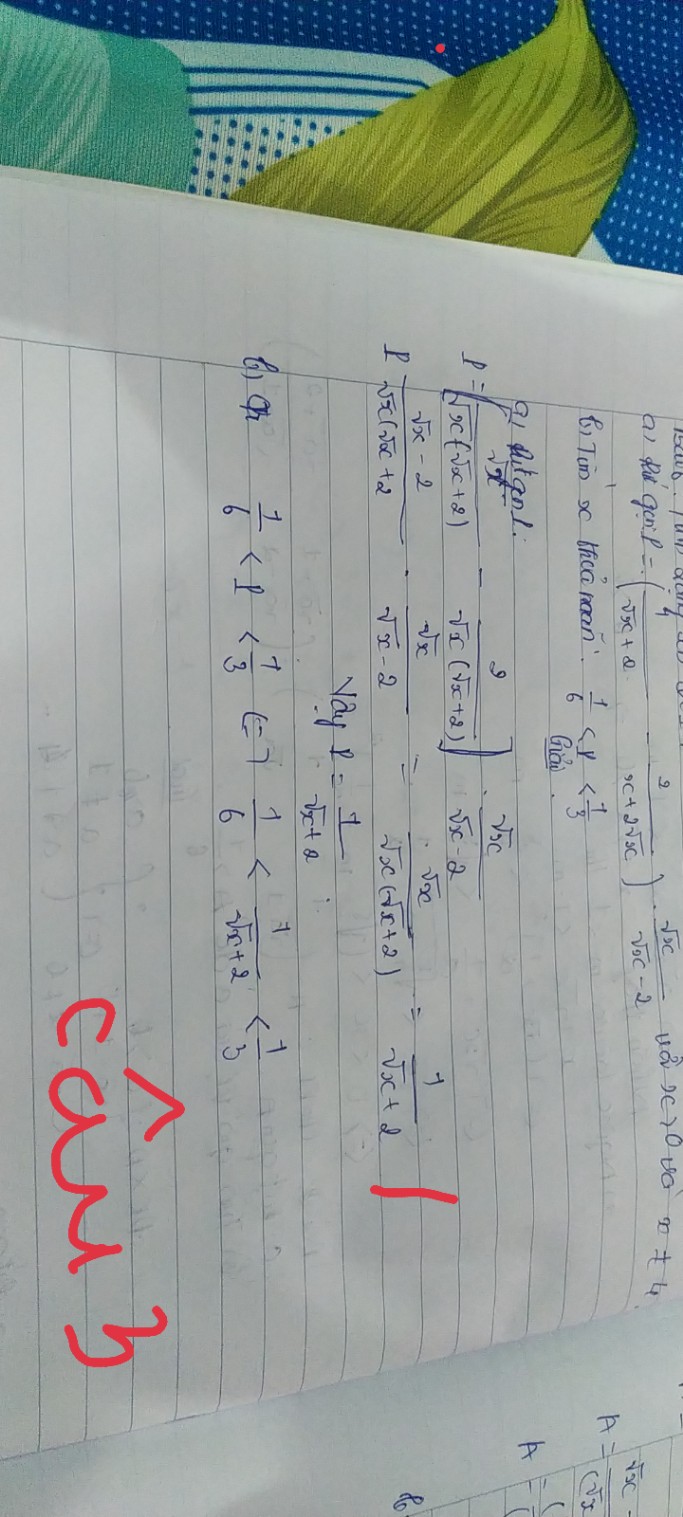 a) Rút gọn P = ( 1/(√x + 2) - 2/(x + 2√x) ) · √x/(√x - 2) với x > 0 và x ≠ 4
b) Tìm x thoả mãn: 1/6 < P < 1/3
Giải
a) Rút gọn P:
P = [ √x/(√x(√x + 2)) - 2/(√x(√x + 2)) ] · √x/(√x - 2)
P (√x - 2)/(√x(√x + 2 · √x/(√x - 2) = √x/(√x(√x + 2)) = 1/(√x + 2)
Vậy P = 1/(√x + 2)
b) 1/6 < P < 1/3 <=> 1/6 < 1/(√x + 2) < 1/3
câu 3
A =
A =